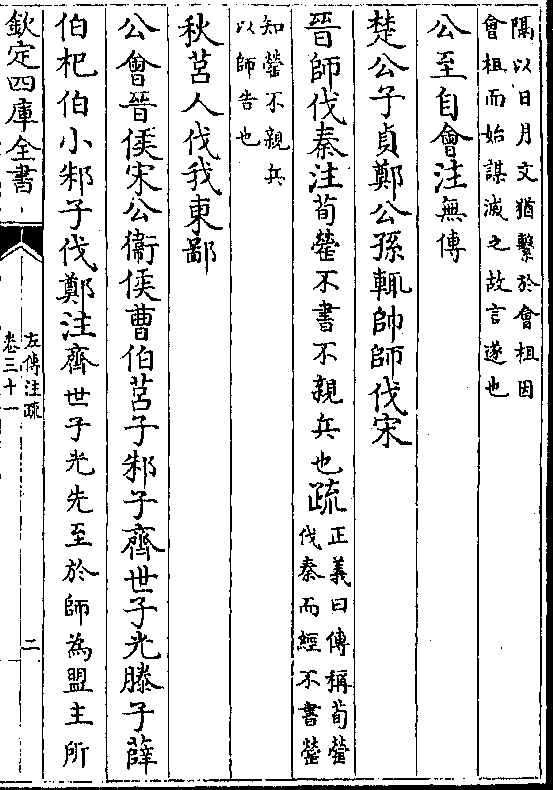 隔以日月文猶繫於會柤因
會柤而始謀滅之故言遂也
公至自會注無傳
楚公子貞鄭公孫輒帥師伐宋
晉師伐秦注荀罃不書不親兵也疏正義曰傳稱荀罃
伐秦而經不書罃
知罃不親兵
以師告也
秋莒人伐我東鄙
公會晉侯宋公衞侯曹伯莒子邾子齊世子光滕子薛
伯杞伯小邾子伐鄭注齊世子光先至於師為盟主所
欽定四庫全書
左傳注疏
卷三十一
二